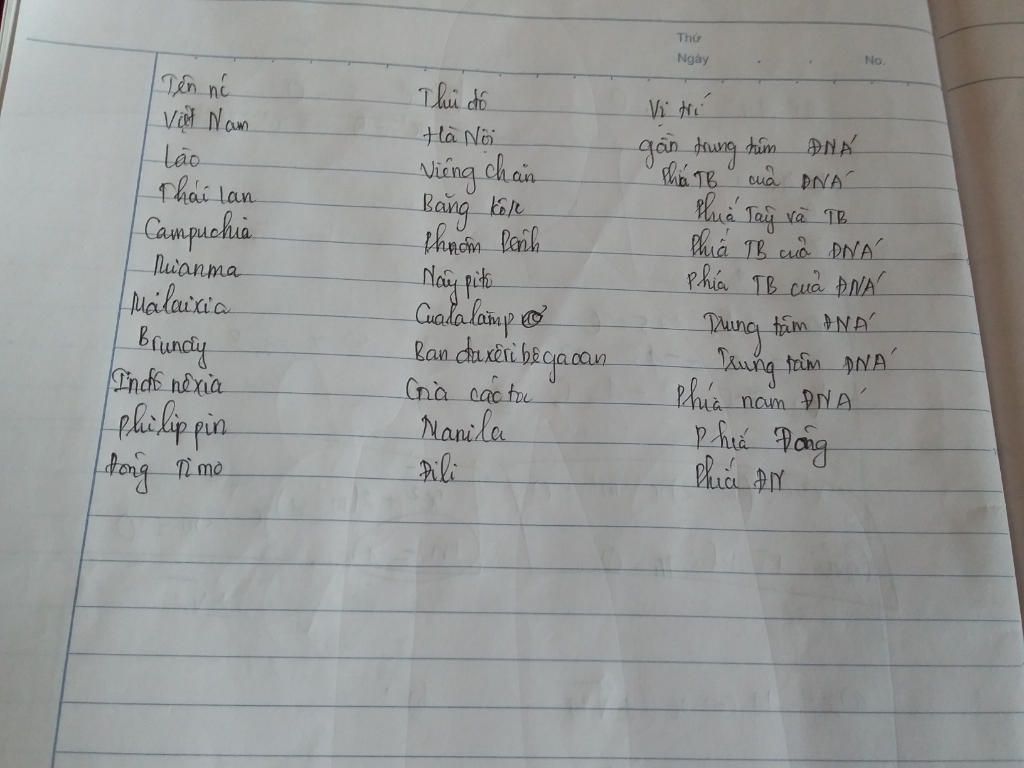 Thứ
Ngày No.
Tên nc Thủ đô Vị trí
Việt Nam Hà Nội gần trung tâm ĐNÁ
Lào Viêng chăn Phía TB của ĐNÁ
Thái lan Băng kốk Phía Tây và TB
Campuchia Phnôm Pênh Phía TB của ĐNÁ
Mianma Nâypito Phía TB của ĐNÁ
Malaixia Cualalămpơ Trung tâm ĐNÁ
Brunây Banđaxêribêgaoan Trung tâm ĐNÁ
Inđônêxia Gia cácta Phía nam ĐNÁ
philippin Manila Phía Đông
Đông Timo Đili Phía ĐN